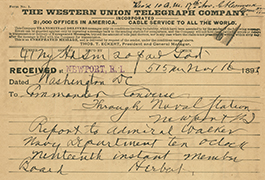 THE WESTERN UNION TELEGRAPH COMPANY.
INCORPORATED
21,000 OFFICES IN AMERICA. CABLE SERVICE TO ALL THE WORLD.
THOS. T. ECKERT, President and General Manager.
RECEIVED at NEWPORT, R.I. 875 am Nov 16 189
Dated Washington DC
To Commander Converse
Through Naval Station
Newport RI
Report to admiral Walker
Navy department ten oclock
nineteenth instant member
Board Herbert